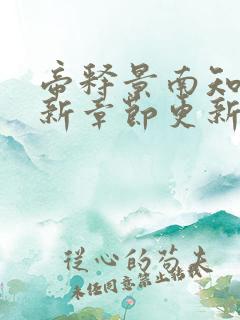 帝释景南知
新章节更新
從心的苟夫
未经同意禁止转载